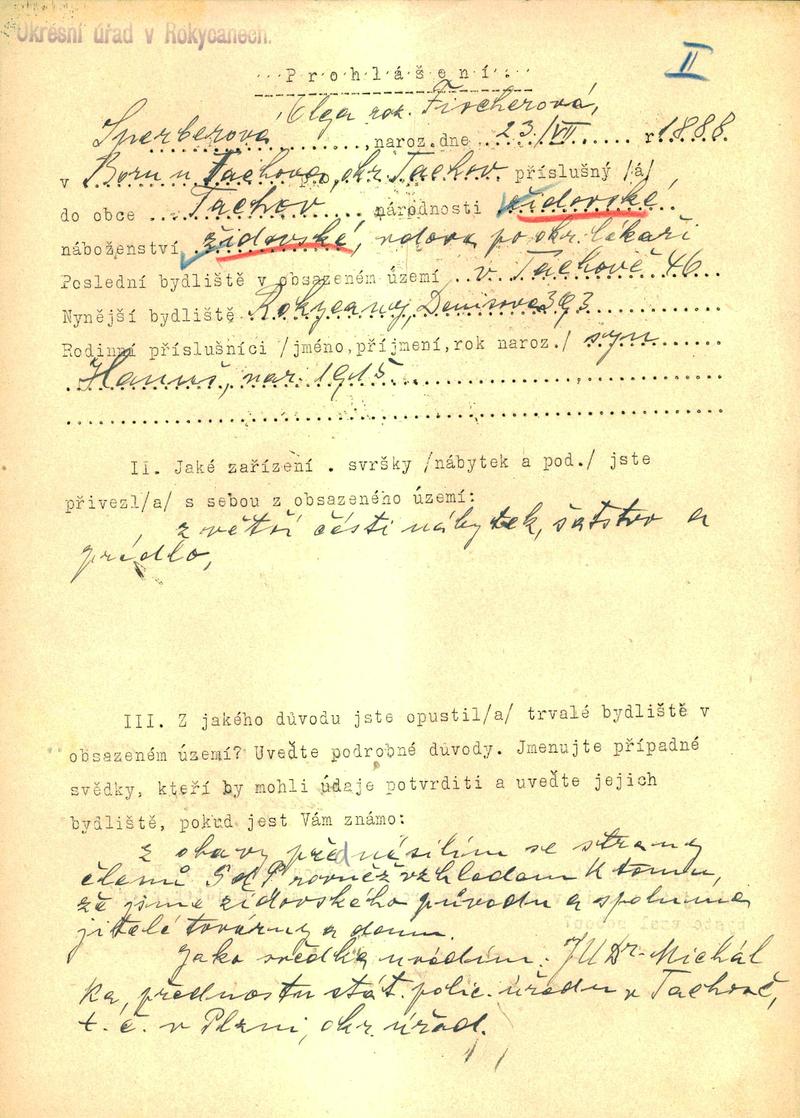 Okresní úřad v Rokycanech.
II
Prohlášení.
Olga roz. Fischerová,
Sperberova, naroz. dne 23./VII r 1888
v Boru u Tachova, okr. Tachov příslušný /á/
do obce Tachov národnosti židovské.
náboženství židovské, vdova po okr. lékaři
Poslední bydliště v obsazeném území v Tachově 46
Nynější bydliště Rokycany, Denisova 393
Rodinní příslušníci /jméno, příjmení, rok naroz./ syn
Hanuš, nar. 1915
II. Jaké zařízení . svršky /nábytek a pod./ jste
přivezl/a/ s sebou z obsazeného území:
z větší části nábytek, šatstvo a
prádlo,
III. Z jakého důvodu jste opustil/a/ trvalé bydliště v
obsazeném území? Uveďte podrobné důvody. Jmenujte případné
svědky, kteří by mohli údaje potvrditi a uveďte jejich
bydliště, pokud jest Vám známo:
z obavy před násilím se strany
členů SdP rovněž vzhledem k tomu,
že jsme židovského původu a spoluma
jitelé továrny a domu.
Jako svědka uvádím: JUDr. Michál
ka, přednostu stát. polic. úřadu v Tachově,
t. č. v Plzni, okr. úřad.